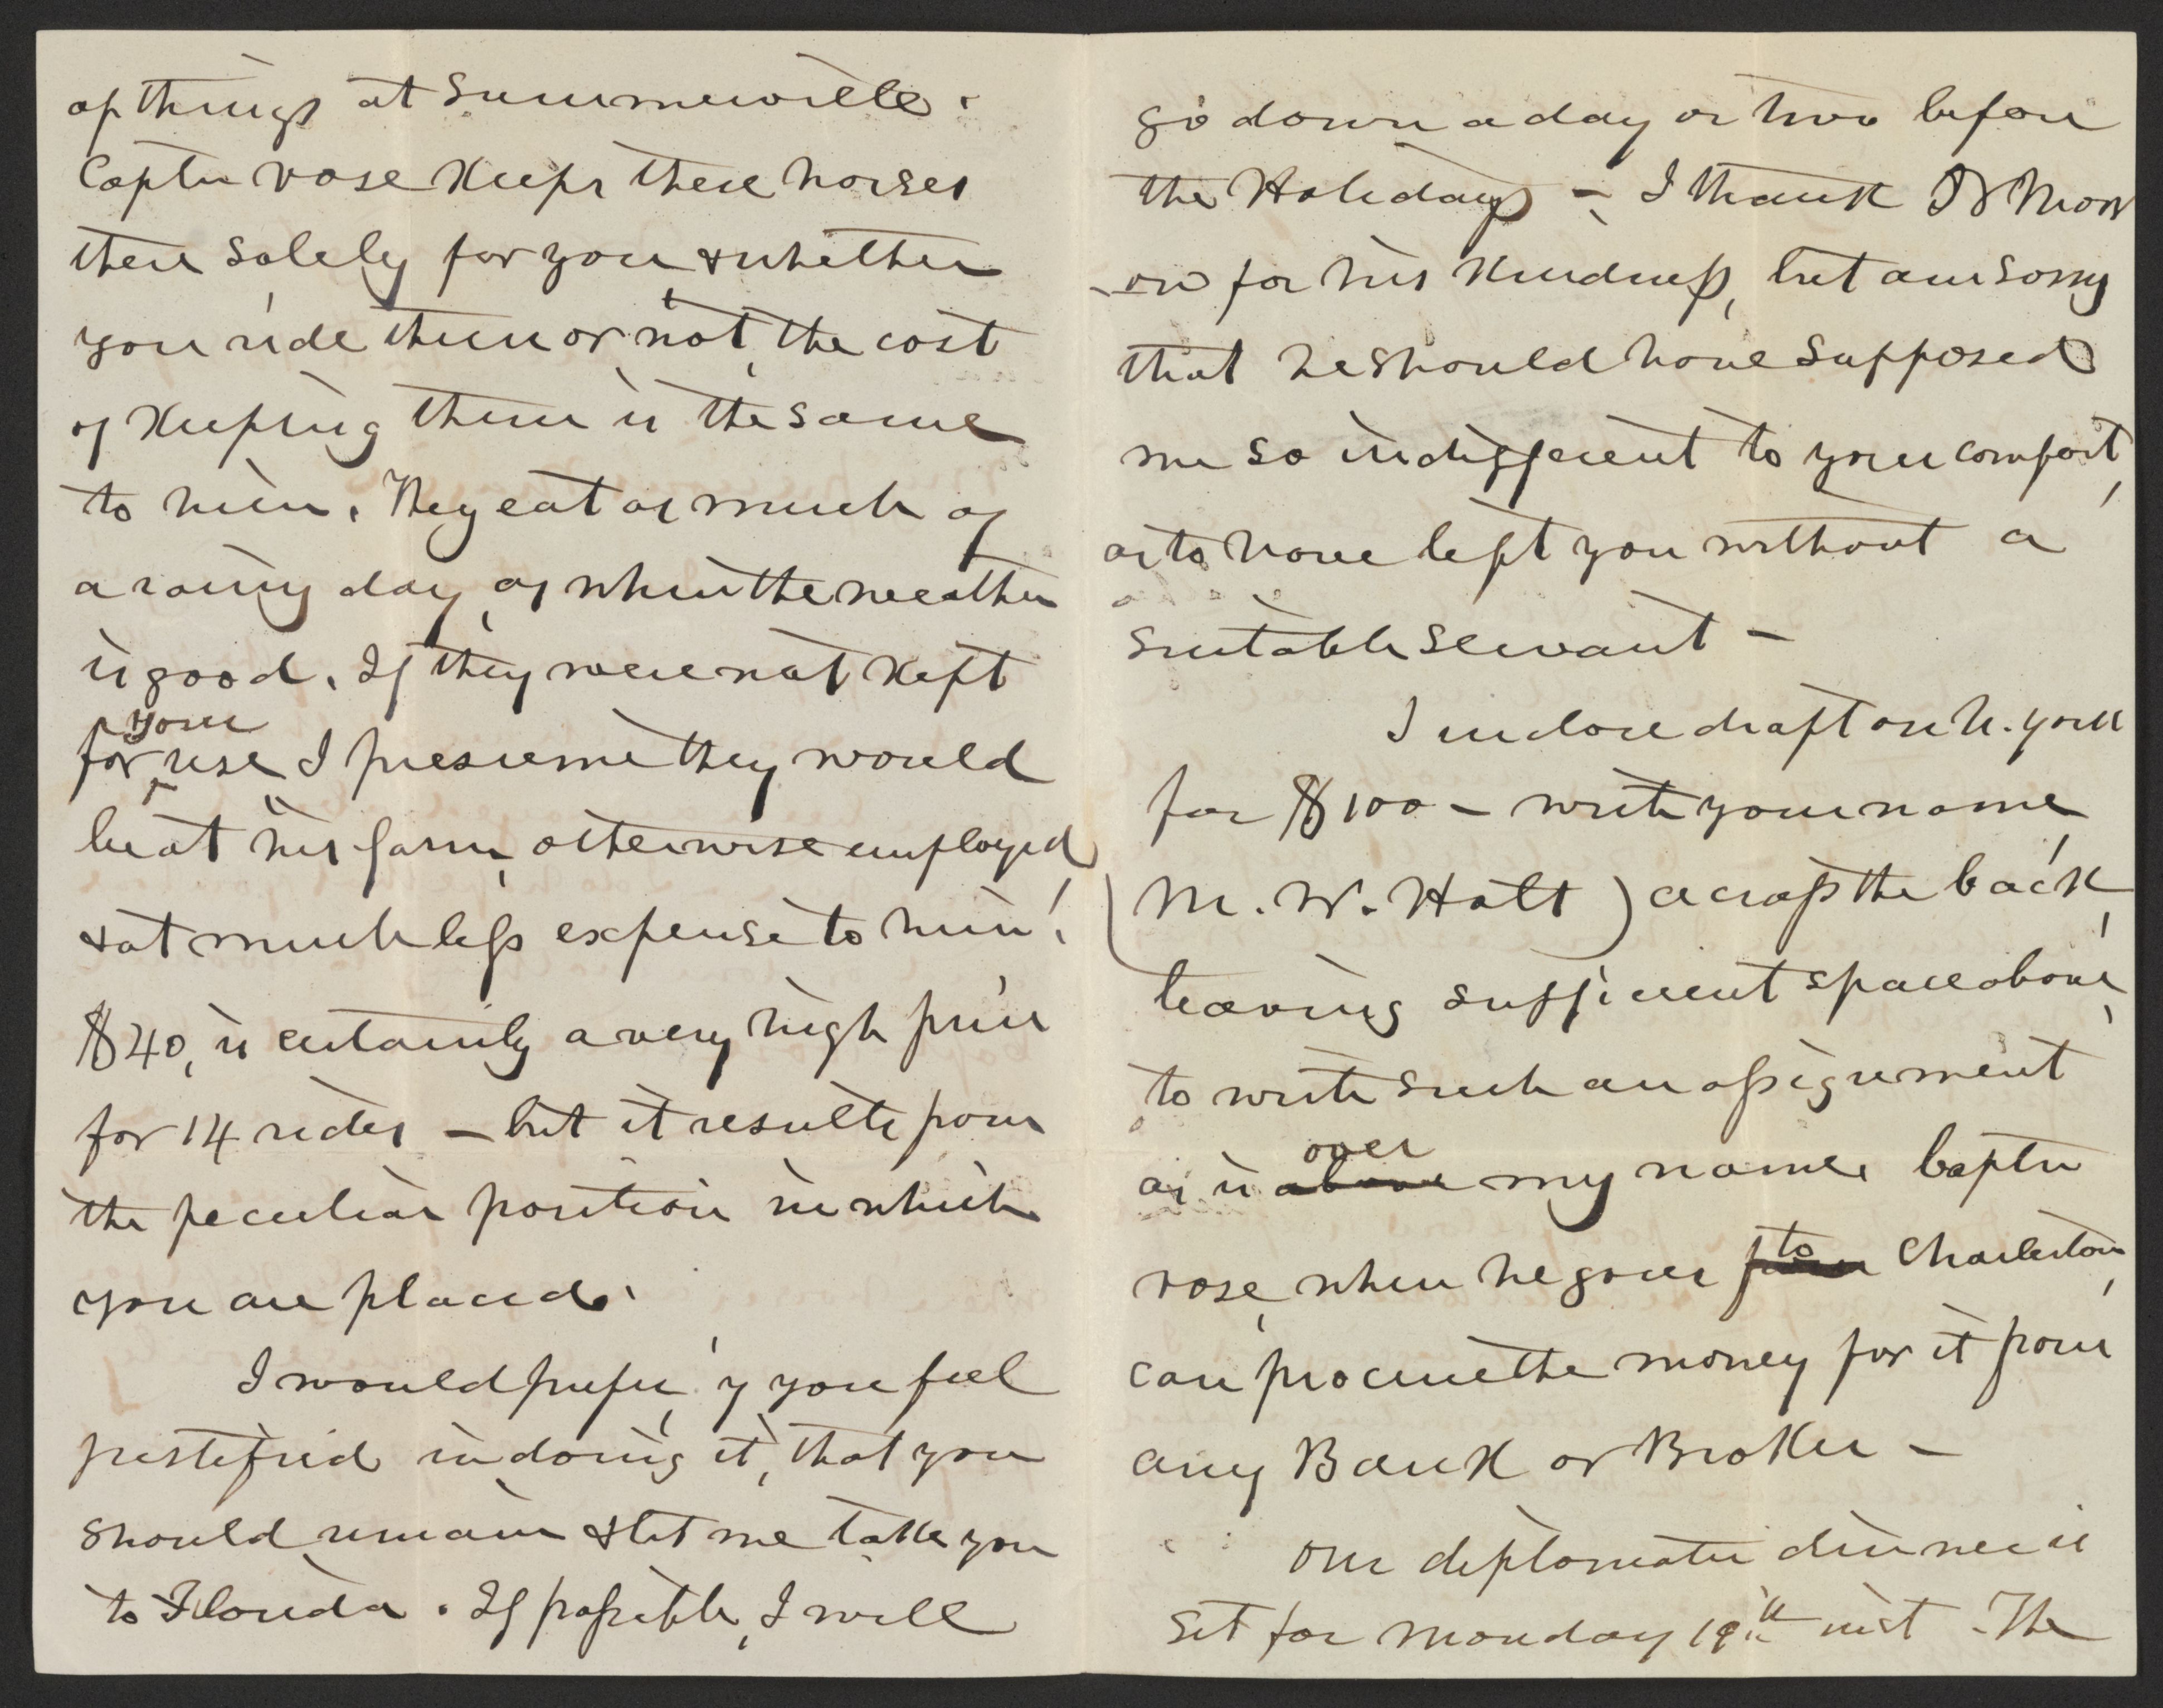 of things at Summerville.
Captn Vose keeps these horses
there solely for you & whether
you ride them or not, the cost
of keeping them is the same
to him. They eat as much of
a rainy day, as when the weather
is good. If they were not kept
for your use, I presume they would
be at his farm, otherwise employed
& at much less expense to him.
$40, is certainly a very high price
for 14 rides – but it results from
the peculiar position in which
you are placed.
I would prefer, if you feel
justified in doing it, that you
should remain & let me take you
to Florida. If possible, I will
go down a day or two before
the Holidays – I thank Dr
for his kindness, but am sorry
that he should have supposed
me so indifferent to your comfort,
as to have left you without a
suitable servant –
I inclose draft on N. York
for $100 – write your name
(M. W. Holt) across the back,
leaving sufficient space above,
to write such an assignment
as is above over my name. Captn
Vose, when he goes from to Charleston,
can procure the money for it from
any Bank or Broker –
Our diplomatic dinner is
set for Monday 19th inst. The